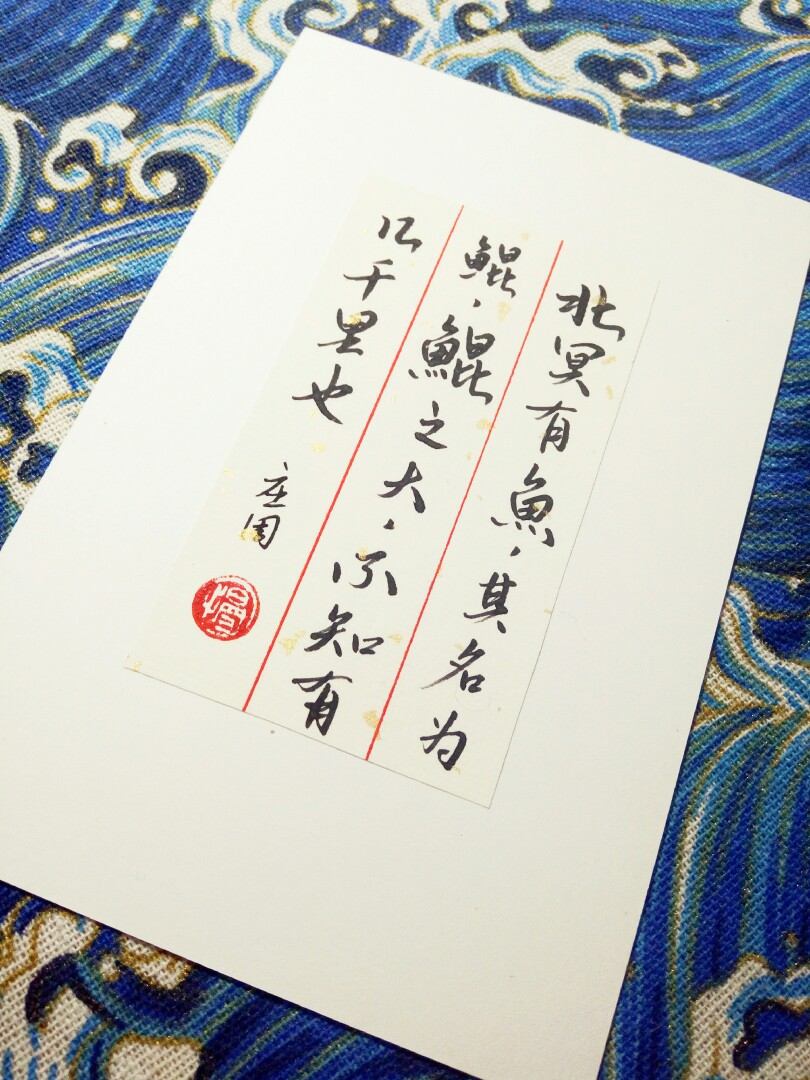 北冥有魚，其名为
鯤，鯤之大，不知有
几千里也
庄周